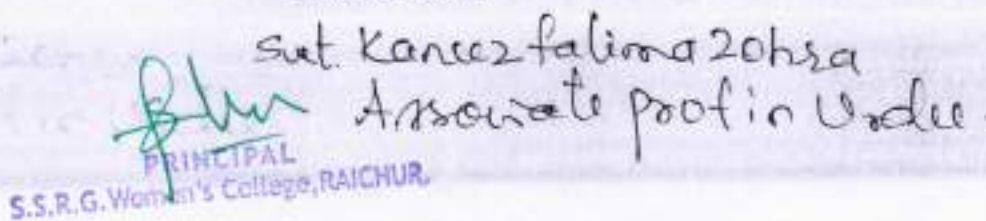 Smt. Kaneez fatima Zohra
Associate prof in Urdu.
PRINCIPAL
S.S.R.G. Women's College, RAICHUR.